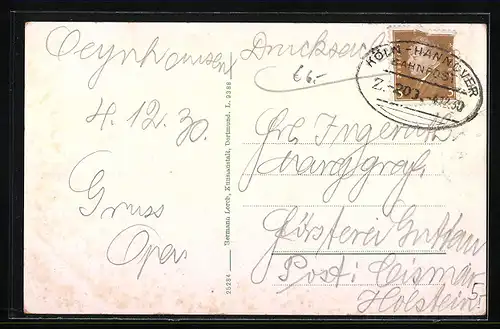 Oeynhausen
4.12.30.
Gruss
Opa
25284 Hermann Lorch, Kunstanstalt, Dortmund. L. 9388
Drucksache
66.-
KÖLN - HANNOVER
BAHNPOST
Z. 4.12.30
Frl. Ingeborg
Marggraf
Försterei Guttau
Post: Cismar
Holstein
5